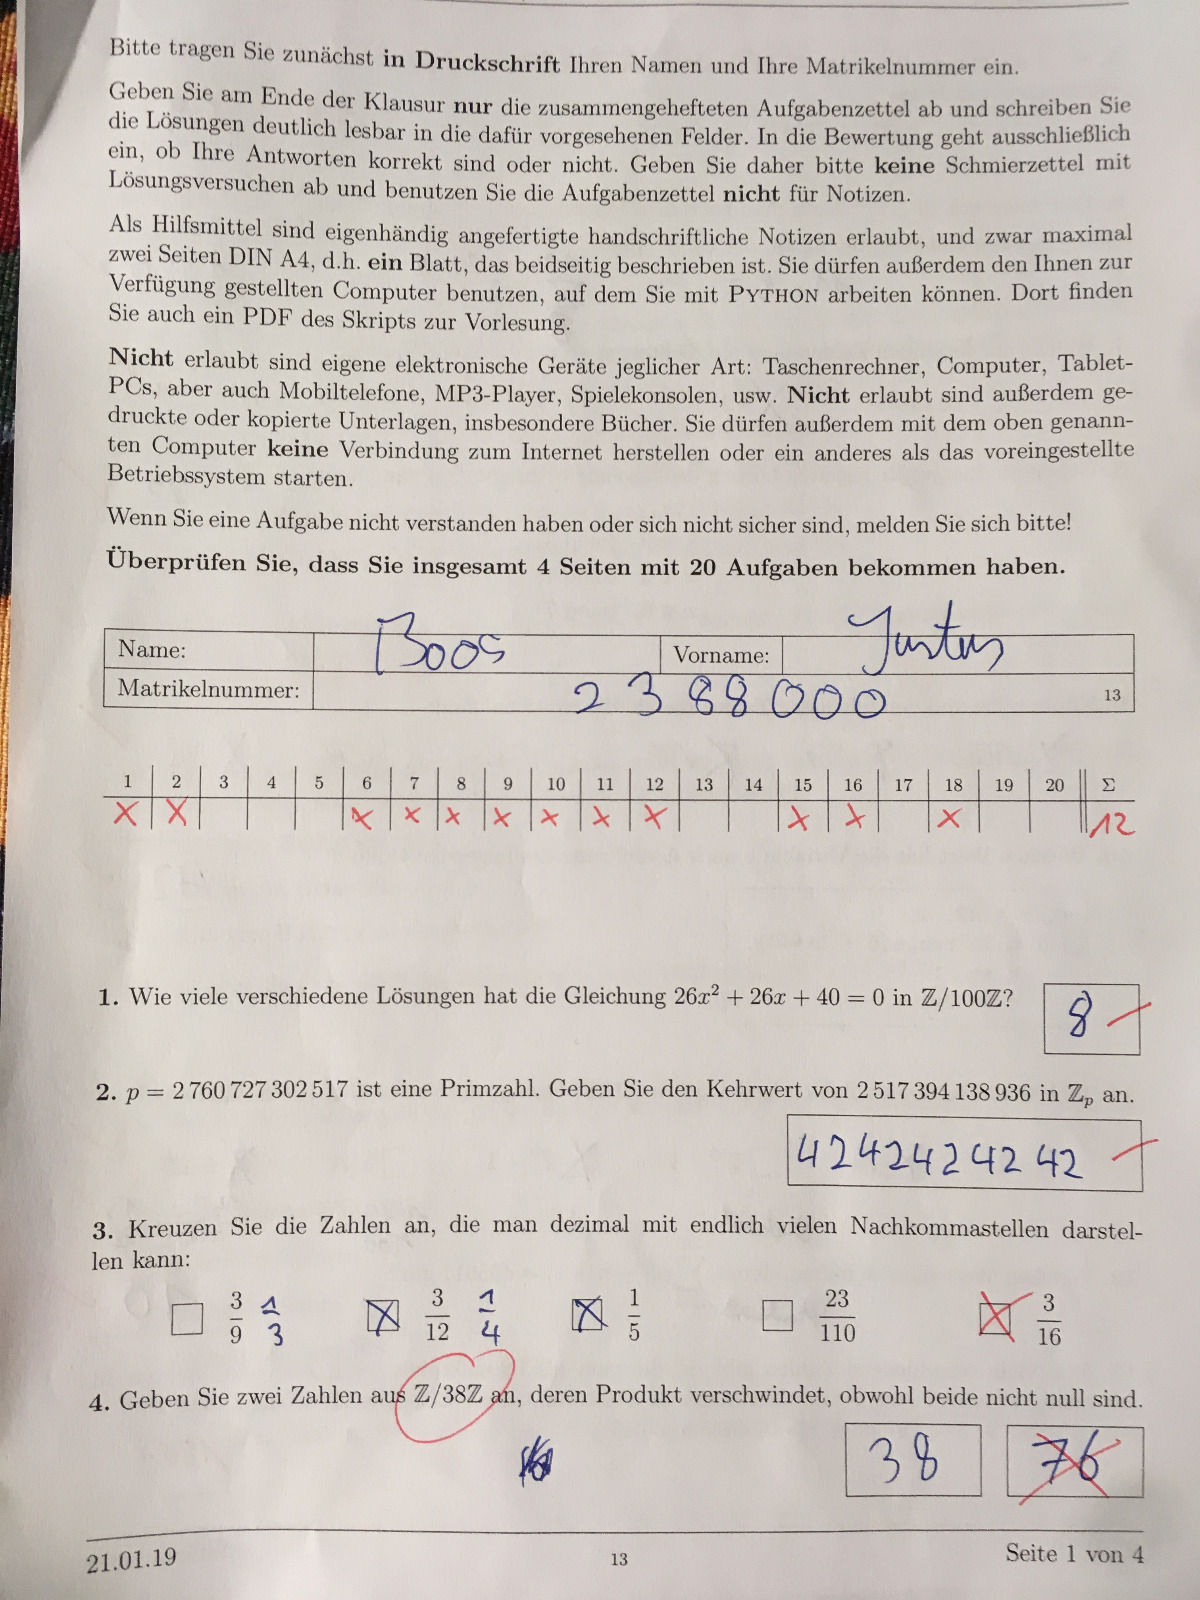 Bitte tragen Sie zunächst in Druckschrift Ihren Namen und Ihre Matrikelnummer ein.
Geben Sie am Ende der Klausur nur die zusammengehefteten Aufgabenzettel ab und schreiben Sie
die Lösungen deutlich lesbar in die dafür vorgesehenen Felder. In die Bewertung geht ausschließlich
ein, ob Ihre Antworten korrekt sind oder nicht. Geben Sie daher bitte keine Schmierzettel mit
Lösungsversuchen ab und benutzen Sie die Aufgabenzettel nicht für Notizen.
Als Hilfsmittel sind eigenhändig angefertigte handschriftliche Notizen erlaubt, und zwar maximal
zwei Seiten DIN A4, d.h. ein Blatt, das beidseitig beschrieben ist. Sie dürfen außerdem den Ihnen zur
Verfügung gestellten Computer benutzen, auf dem Sie mit PYTHON arbeiten können. Dort finden
Sie auch ein PDF des Skripts zur Vorlesung.
Nicht erlaubt sind eigene elektronische Geräte jeglicher Art: Taschenrechner, Computer, Tablet-
PCs, aber auch Mobiltelefone, MP3-Player, Spielekonsolen, usw. Nicht erlaubt sind außerdem ge-
druckte oder kopierte Unterlagen, insbesondere Bücher. Sie dürfen außerdem mit dem oben genann-
ten Computer keine Verbindung zum Internet herstellen oder ein anderes als das voreingestellte
Betriebssystem starten.
Wenn Sie eine Aufgabe nicht verstanden haben oder sich nicht sicher sind, melden Sie sich bitte!
Überprüfen Sie, dass Sie insgesamt 4 Seiten mit 20 Aufgaben bekommen haben.
Name: Boos Vorname: Justus
Matrikelnummer: 2388000 13
1 2 3 4 5 6 7 8 9 10 11 12 13 14 15 16 17 18 19 20 Σ
X X X X X X X X X X X X 12
1. Wie viele verschiedene Lösungen hat die Gleichung 26x² + 26x + 40 = 0 in ℤ/100ℤ? 8
2. p = 2 760 727 302 517 ist eine Primzahl. Geben Sie den Kehrwert von 2 517 394 138 936 in ℤₚ an.
4242424242
3. Kreuzen Sie die Zahlen an, die man dezimal mit endlich vielen Nachkommastellen darstel-
len kann:
3/9 1/3 X 3/12 1/4 X 1/5 23/110 X 3/16
4. Geben Sie zwei Zahlen aus ℤ/38ℤ an, deren Produkt verschwindet, obwohl beide nicht null sind.
38 76
21.01.19 13 Seite 1 von 4